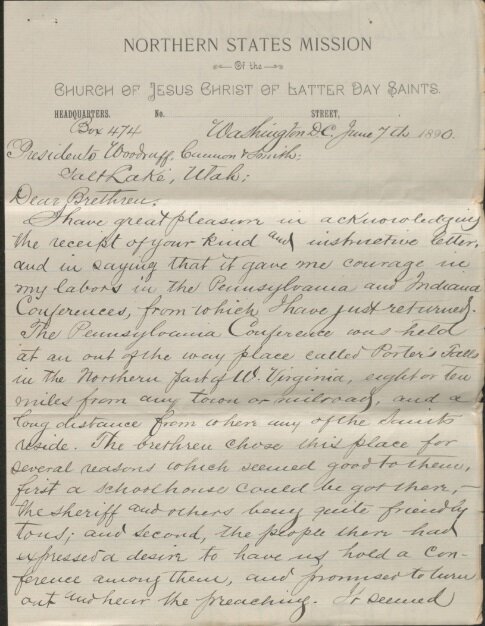 NORTHERN STATES MISSION
Of the
CHURCH OF JESUS CHRIST OF LATTER DAY SAINTS.
HEADQUARTERS. No. STREET,
Box 474 Washington D.C. June 7th 1890.
Presidents Woodruff, Cannon & Smith;
Salt Lake, Utah;
Dear Brethren:
I have great pleasure in acknowledging
the receipt of your kind and instructive letter,
and in saying that it gave me courage in
my labors in the Pennsylvania and Indiana
Conferences, from which I have just returned.
The Pennsylvania Conference was held
at an out of the way place called Porter's Falls
in the Northern part of W. Virginia, eight or ten
miles from any town or railroad, and a
long distance from where any of the Saints
reside. The brethren chose this place for
several reasons which seemed good to them,
first a schoolhouse could be got there,-
the sheriff and others being quite friendly
to us; and second, the people there had
expressed a desire to have us hold a Con-
ference among them, and promised to turn
out and hear the preaching. It seemed